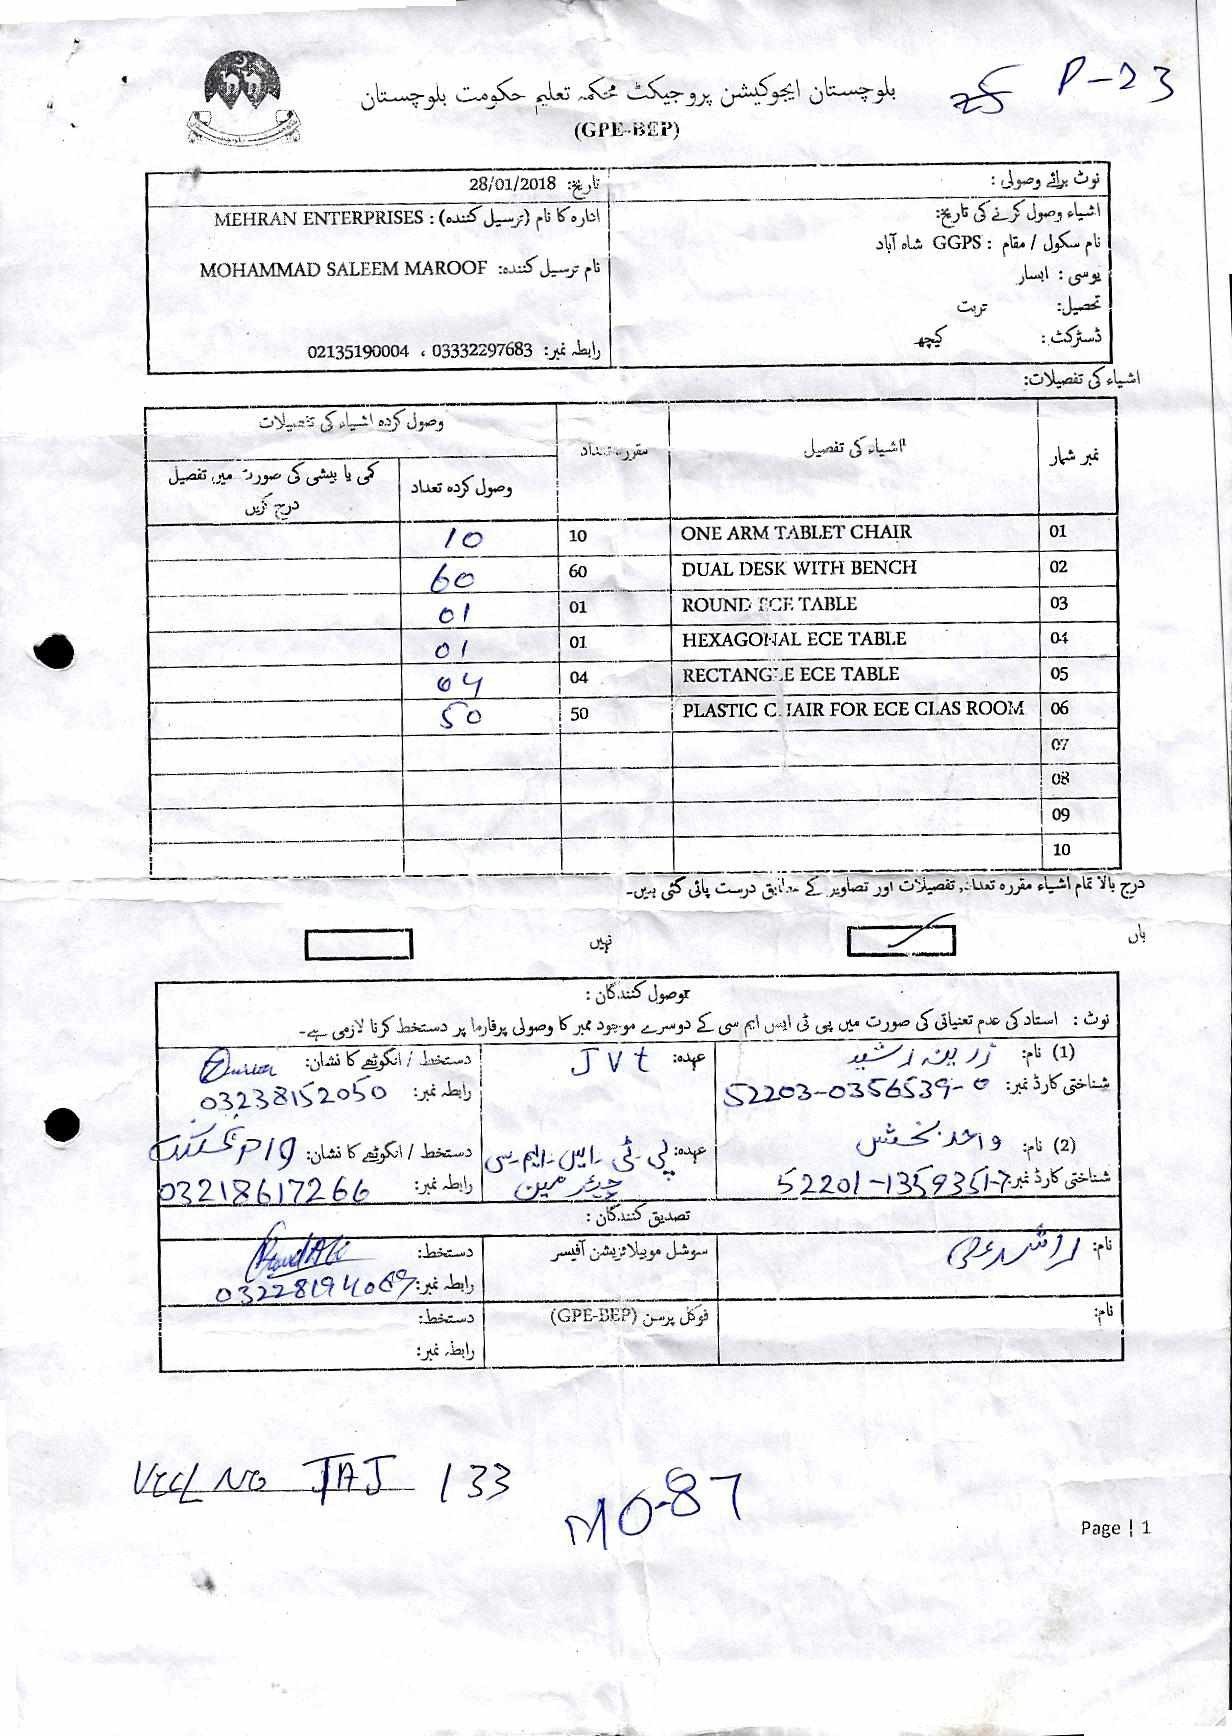 P-23
بلوچستان ایجوکیشن پروجیکٹ محکمہ تعلیم حکومت بلوچستان
(GPE-BEP)
نوٹ برائے وصولی :
تاریخ: 28/01/2018
اشیاء وصول کرنے کی تاریخ:
ادارہ کا نام (ترسیل کنندہ) : MEHRAN ENTERPRISES
نام سکول / مقام : GGPS شاہ آباد
نام ترسیل کنندہ: MOHAMMAD SALEEM MAROOF
یوسی : ابسار
تحصیل: تربت
ڈسٹرکٹ : کیچ
رابطہ نمبر: 03332297683 ، 02135190004
اشیاء کی تفصیلات:
نمبر شمار اشیاء کی تفصیل مقررہ تعداد وصول کردہ اشیاء کی تفصیلات
وصول کردہ تعداد کمی یا بیشی کی صورت میں تفصیل درج کریں
01 ONE ARM TABLET CHAIR 10 10
02 DUAL DESK WITH BENCH 60 60
03 ROUND ECE TABLE 01 01
04 HEXAGONAL ECE TABLE 01 01
05 RECTANGLE ECE TABLE 04 04
06 PLASTIC CHAIR FOR ECE CLAS ROOM 50 50
07
08
09
10
درج بالا تمام اشیاء مقررہ تعداد، تفصیلات اور تصاویر کے مطابق درست پائی گئی ہیں۔
ہاں نہیں
وصول کنندگان :
نوٹ : استاد کی عدم تعیناتی کی صورت میں پی ٹی ایس ایم سی کے دوسرے موجود ممبر کا وصولی پرفارما پر دستخط کرنا لازمی ہے۔
(1) نام: زرینہ رشید عہدہ: JVt دستخط / انگوٹھے کا نشان:
شناختی کارڈ نمبر: 52203-0356539-0 رابطہ نمبر: 03238152050
(2) نام: واحد بخش عہدہ: پی-ٹی-ایس-ایم-سی چیئرمین دستخط / انگوٹھے کا نشان:
شناختی کارڈ نمبر: 52201-1359351-7 رابطہ نمبر: 03218617266
تصدیق کنندگان :
نام: راشد علی سوشل موبیلائزیشن آفیسر دستخط:
رابطہ نمبر: 03228194069
نام: فوکل پرسن (GPE-BEP) دستخط:
رابطہ نمبر:
NO JAJ 133
MO-87
Page | 1